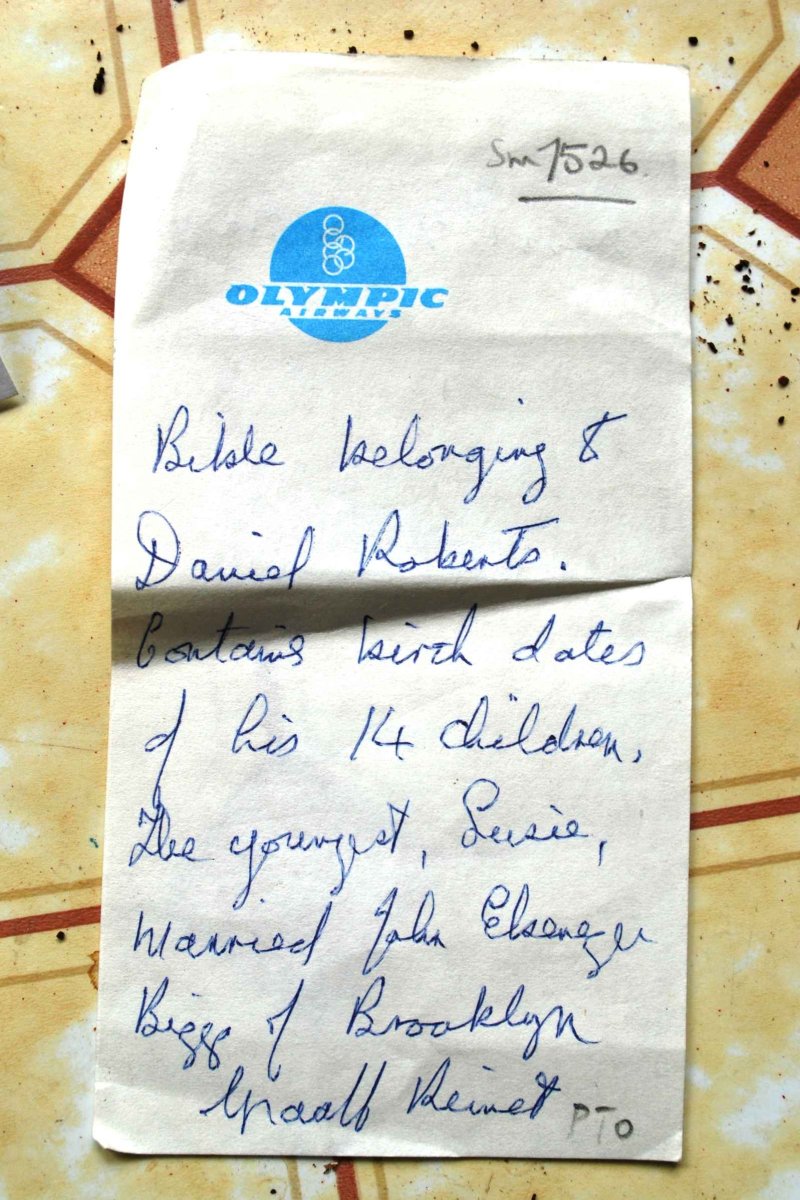 Sm 1526.
OLYMPIC
AIRWAYS
Bible belonging to
Daniel Roberts.
Contains birth dates
of his 14 children.
The youngest, Susie,
married John Ebenezer
Biggs of Brooklyn
Graaff Reinet
PTO